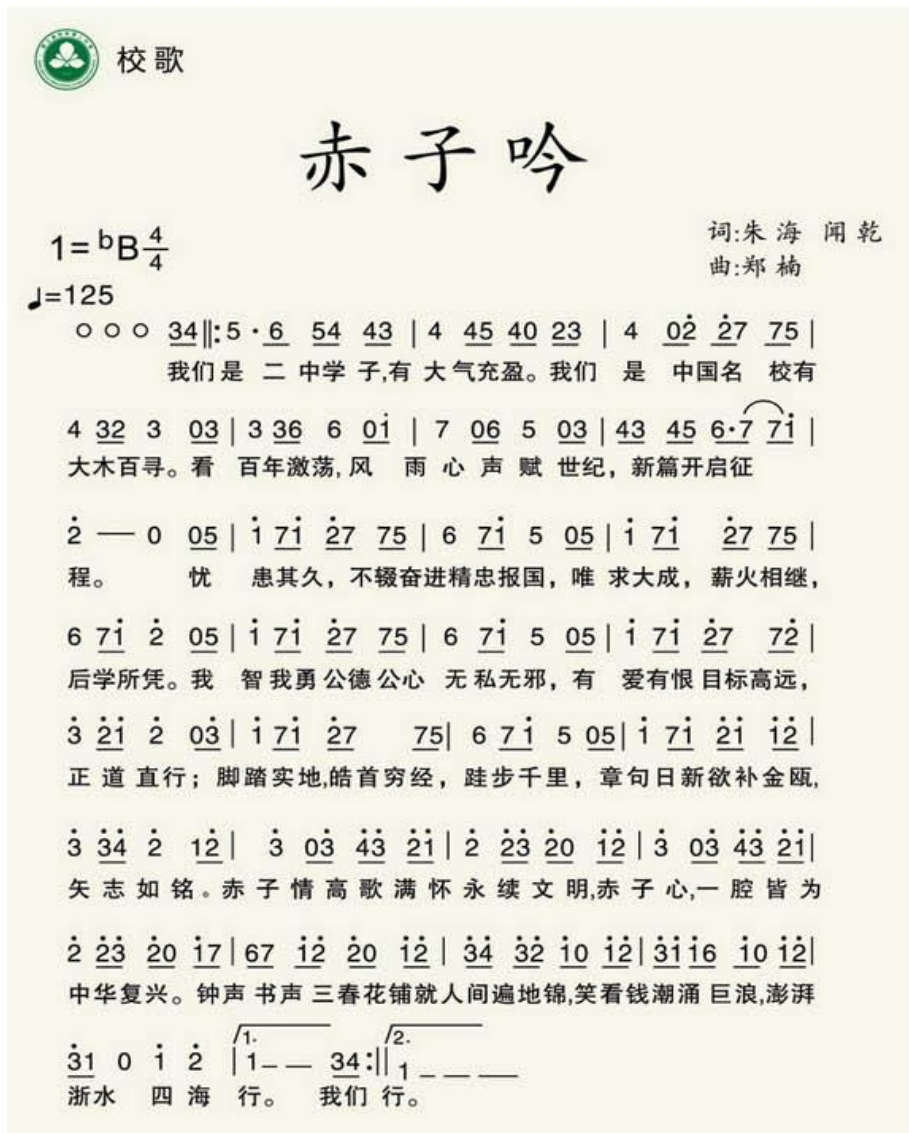 校歌
赤子吟
1=ᵇB 4/4
词:朱海 闻乾
曲:郑楠
♩=125
○ ○ ○ 34‖:5 · 6 54 43 | 4 45 40 23 | 4 02̇ 2̇7 75 |
我们是 二 中学 子,有 大气充盈。我们 是 中国名 校有
4 32 3 03 | 3 36 6 01̇ | 7 06 5 03 | 43 45 6·7 71̇ |
大木百寻。看 百年激荡,风 雨 心 声 赋 世纪，新篇开启征
2̇ — 0 05 | 1̇ 71̇ 2̇7 75 | 6 71̇ 5 05 | 1̇ 71̇ 2̇7 75 |
程。 忧 患其久，不辍奋进精忠报国，唯 求大成，薪火相继，
6 71̇ 2̇ 05 | 1̇ 71̇ 2̇7 75 | 6 71̇ 5 05 | 1̇ 71̇ 2̇7 72̇ |
后学所凭。我 智我勇公德公心 无私无邪，有 爱有恨目标高远，
3̇ 2̇1̇ 2̇ 03̇ | 1̇ 71̇ 2̇7 75 | 6 71̇ 5 05 | 1̇ 71̇ 2̇1̇ 1̇2̇ |
正 道 直行；脚踏实地,皓首穷经，跬步千里，章句日新欲补金瓯,
3̇ 3̇4̇ 2̇ 12̇ | 3̇ 03̇ 4̇3̇ 2̇1̇ | 2̇ 2̇3̇ 2̇0 1̇2̇ | 3̇ 03̇ 4̇3̇ 2̇1̇ |
矢 志 如 铭。赤 子 情 高 歌 满 怀 永 续 文 明,赤 子 心,一 腔 皆 为
2̇ 2̇3̇ 2̇0 1̇7 | 67 1̇2̇ 2̇0 1̇2̇ | 3̇4̇ 3̇2̇ 1̇0 1̇2̇ | 3̇1̇1̇6 1̇0 1̇2̇ |
中华复兴。钟声 书声 三春花铺就人间遍地锦,笑看钱潮涌 巨浪,澎湃
3̇1 0 1̇ 2̇ | 1. 1 — — 34:‖ 2. 1 — — —
浙水 四 海 行。 我们 行。